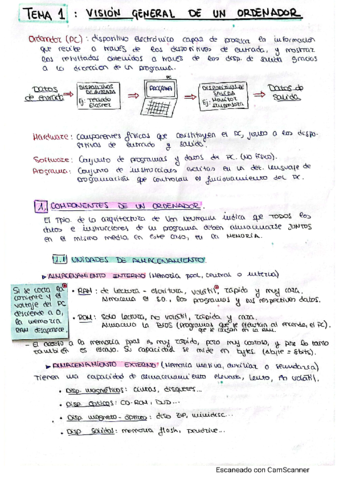 TEMA 1 : VISIÓN GENERAL DE UN ORDENADOR
Ordenador (PC) : dispositivo electrónico capaz de procesar la información
que recibe a través de los dispositivos de entrada, y mostrar
los resultados obtenidos a través de los disp. de salida gracias
a la dirección de un programa.
Datos de entrada
DISPOSITIVOS DE ENTRADA
Ej: Teclado
Escáner
PROGRAMA
DISPOSITIVOS DE SALIDA
Ej: Monitor
Impresora
Datos de salida
Hardware: componentes físicos que constituyen el PC, junto a los dispo-
sitivos de entrada y salida.
Software: Conjunto de programas y datos de PC. (NO físico).
Programa: Conjunto de instrucciones escritas en un det. lenguaje de
programación que controlan el funcionamiento del PC.
1. COMPONENTES DE UN ORDENADOR
El tipo de la arquitectura de Von Neumann indica que TODOS los
datos e instrucciones de un programa deben almacenarse JUNTOS
en el mismo medio, en este caso, en la MEMORIA.
1.1 UNIDADES DE ALMACENAMIENTO
ALMACENAMIENTO INTERNO (Memoria ppal, central o interna)
Si se corta la
corriente y el
voltaje del PC
desciende a 0,
la memoria
RAM desaparece.
• RAM: de lectura - escritura, volátil, rápida y muy cara.
Almacena el S.O, los programas y sus respectivos datos.
• ROM: Solo lectura, no volátil, rápida y cara.
Almacena la BIOS (programas que se ejecutan al encender el PC).
- El acceso a la memoria ppal es muy rápido, pero muy costosa, y por lo tanto
también es escaso. Su capacidad se mide en bytes (1byte = 8bits).
ALMACENAMIENTO EXTERNO (Memoria masiva, auxiliar o secundaria)
Tienen una capacidad de almacenamiento elevada, lento, no volátil,
• Disp. magnéticos: cintas, disquetes...
• Disp. ópticos: CD-ROM, DVD...
• Disp. magneto-ópticos: disco ZIP, minidisc...
• Disp. Sólidos: memoria flash, pendrive...
Escaneado con CamScanner